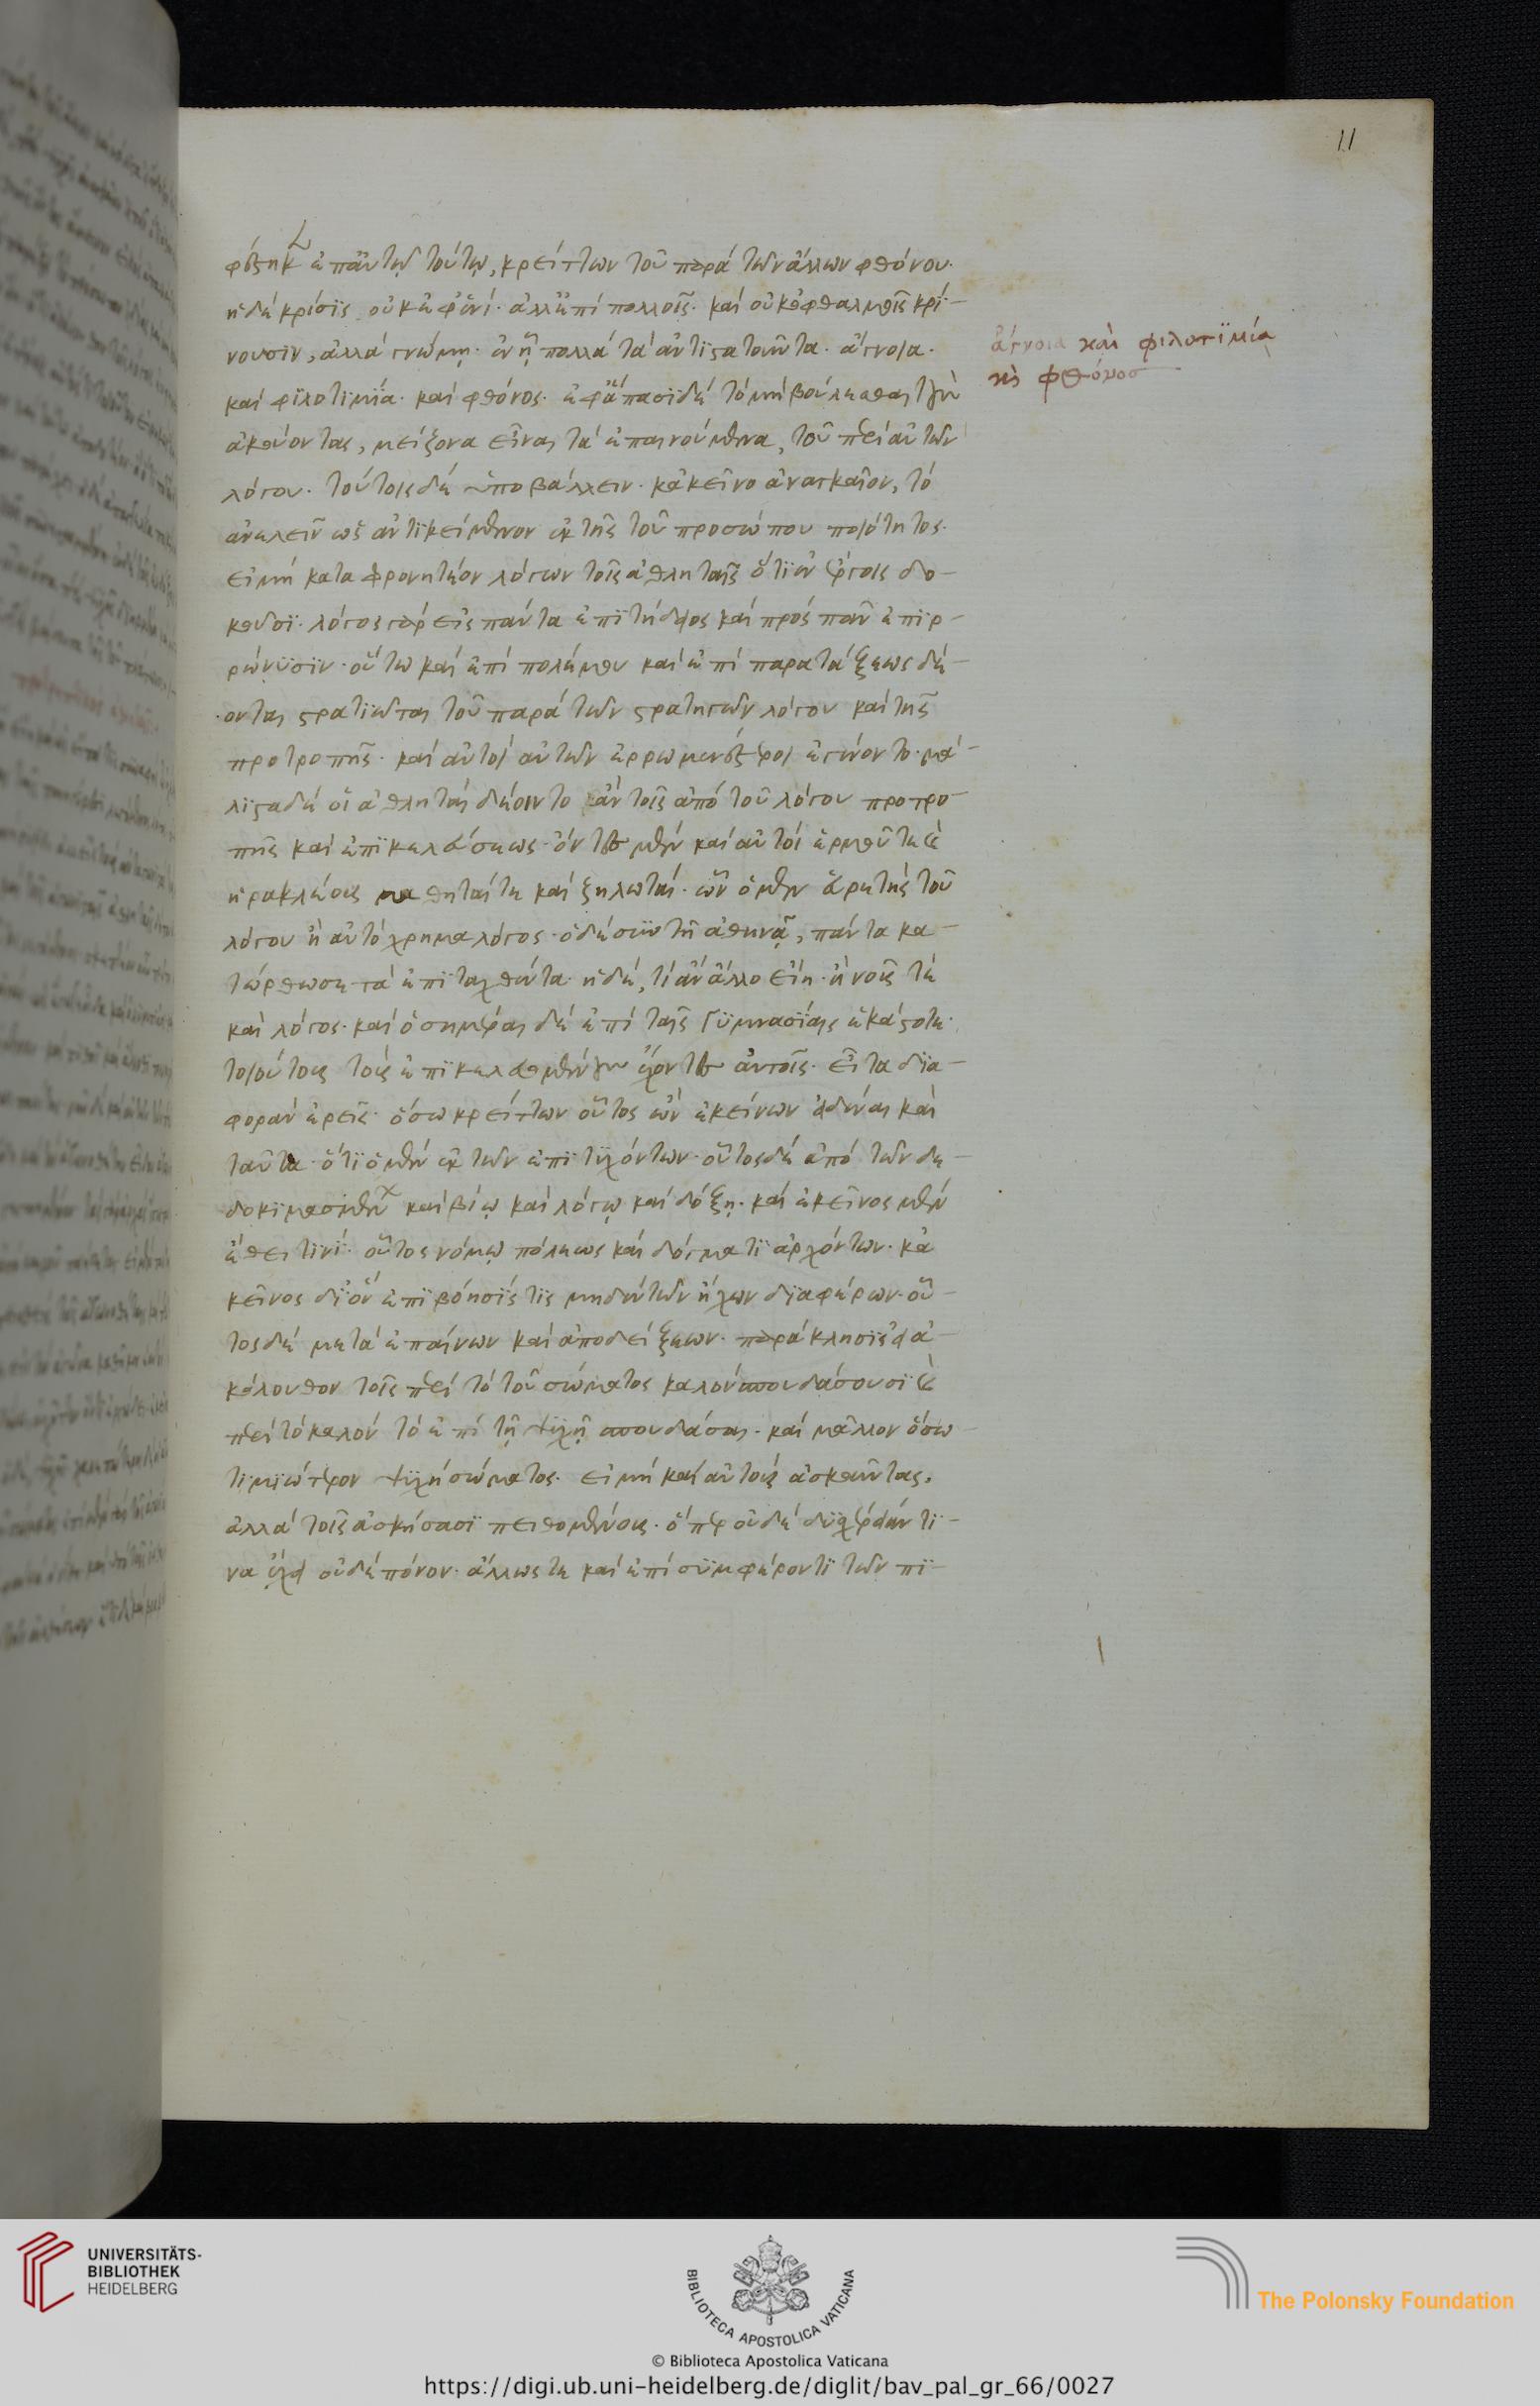 11
ἐπ αὐτῷ τούτῳ, κρείττων τοῦ παρά τῶν ἄλλων φθόνου·
ἡ δέ κρίσϊς οὐκ ἐφ ἑνί· ἀλλ ἐπί πολλοῖς· καί οὐκ ὀφθαλμοῖς κρί-
νουσϊν, ἀλλά γνώμῃ· ἐν ᾗ πολλά τά ἀντιστατοῦντα· ἄγνοια·
καί φϊλοτιμϊα· καί φθόνος· ἐφ ἅπασϊ δέ τό μή βούλεσθαι τούς
ἀκούοντας, μείζονα εἶναι τά ἐπαινούμενα, τοῦ περί αὐτῶν
λόγου· τούτοις δέ ὑποβάλλειν· κἀκεῖνο ἀναγκαῖον, τό
ἀνελεῖν ὡς ἀντικείμενον ἐκ τῆς τοῦ προσώπου ποιότητος·
εἰ μή καταφρονητέον λόγων τοῖς ἀθληταῖς ὅτι ἐν ἔργοις δο-
κοῦσϊ· λόγος γάρ εἰς πάντα ἐπϊτήδειος καί πρός πᾶν ἐπϊρ-
ρώννϋσϊν· οὕτω καί ἐπί πολέμου καί ἐπί παρατάξεως δέ-
ονται στρατϊῶται τοῦ παρά τῶν στρατηγῶν λόγου καί τῆς
προτροπῆς· καί αὐτοί αὑτῶν ἐρρωμενέστεροι ἐγίνοντο· μά-
λϊστα δέ οἱ ἀθληταί δέοιντο ἄν τοῖς ἀπό τοῦ λόγου προτρο-
πῆς καί ἐπϊκελεύσεως· ὄντες μέν καί αὐτοί ἑρμοῦ τε καί
ἡρακλέους μαθηταί τε καί ζηλωταί· ὧν ὁ μέν εὑρετής τοῦ
λόγου ἤ αὐτόχρημα λόγος· ὁ δέ σύν τῇ ἀθηνᾷ, πάντα κα-
τώρθωσε τά ἐπϊταχθέντα· ἡ δέ, τί ἄν ἄλλο εἴη· ἤ νοῦς τέ
καί λόγος· καί ὁσημέραι δέ ἐπί ταῖς γϋμνασίαις ἑκάστοτε·
τοιούτους τούς ἐπϊκελευομένους ἔχοντες αὐτοῖς· εἶτα δϊα-
φοράν ἐρεῖς· ὅσω κρείττων οὗτος ὤν ἐκείνων
ταῦτα· ὅτϊ ὁ μέν ἐκ τῶν ἐπϊτϋχόντων· οὗτος δέ ἀπό τῶν δε-
δοκϊμασμένων καί βίῳ καί λόγῳ καί δόξῃ· καί ἐκεῖνος μέν
ἔθει τινί· οὗτος νόμῳ πόλεως καί δόγματϊ ἀρχόντων· κἀ
κεῖνος δϊ ὅν ἐπϊβόησϊς τις μηδέν τῶν ἤχων δϊαφέρων· οὗ-
τος δέ μετά ἐπαίνων καί ἀποδείξεων· παράκλησϊς εἰ ἀ-
κόλουθον τοῖς περί τό τοῦ σώματος καλόν σπουδάσουσϊ καί
περί τό καλόν τό ἐπί τῇ ψϋχῇ σπουδάσαι· καί μᾶλλον ὅσω
τϊμϊώτερον ψϋχή σώματος· εἰ μή καί αὐτούς ἀσκοῦντας,
ἀλλά τοῖς ἀσκήσασϊ πειθομένους· ὅπερ οὐδέ δϋσχέρειάν τϊ-
να ἔχει οὐδέ πόνον· ἄλλως τε καί ἐπί σϋμφέροντϊ τῶν πϊ-
ἄγνοια καὶ φιλοτϊμία
καὶ φθόνος
UNIVERSITÄTS-
BIBLIOTHEK
HEIDELBERG
BIBLIOTECA APOSTOLICA VATICANA
The Polonsky Foundation
© Biblioteca Apostolica Vaticana
https://digi.ub.uni-heidelberg.de/diglit/bav_pal_gr_66/0027